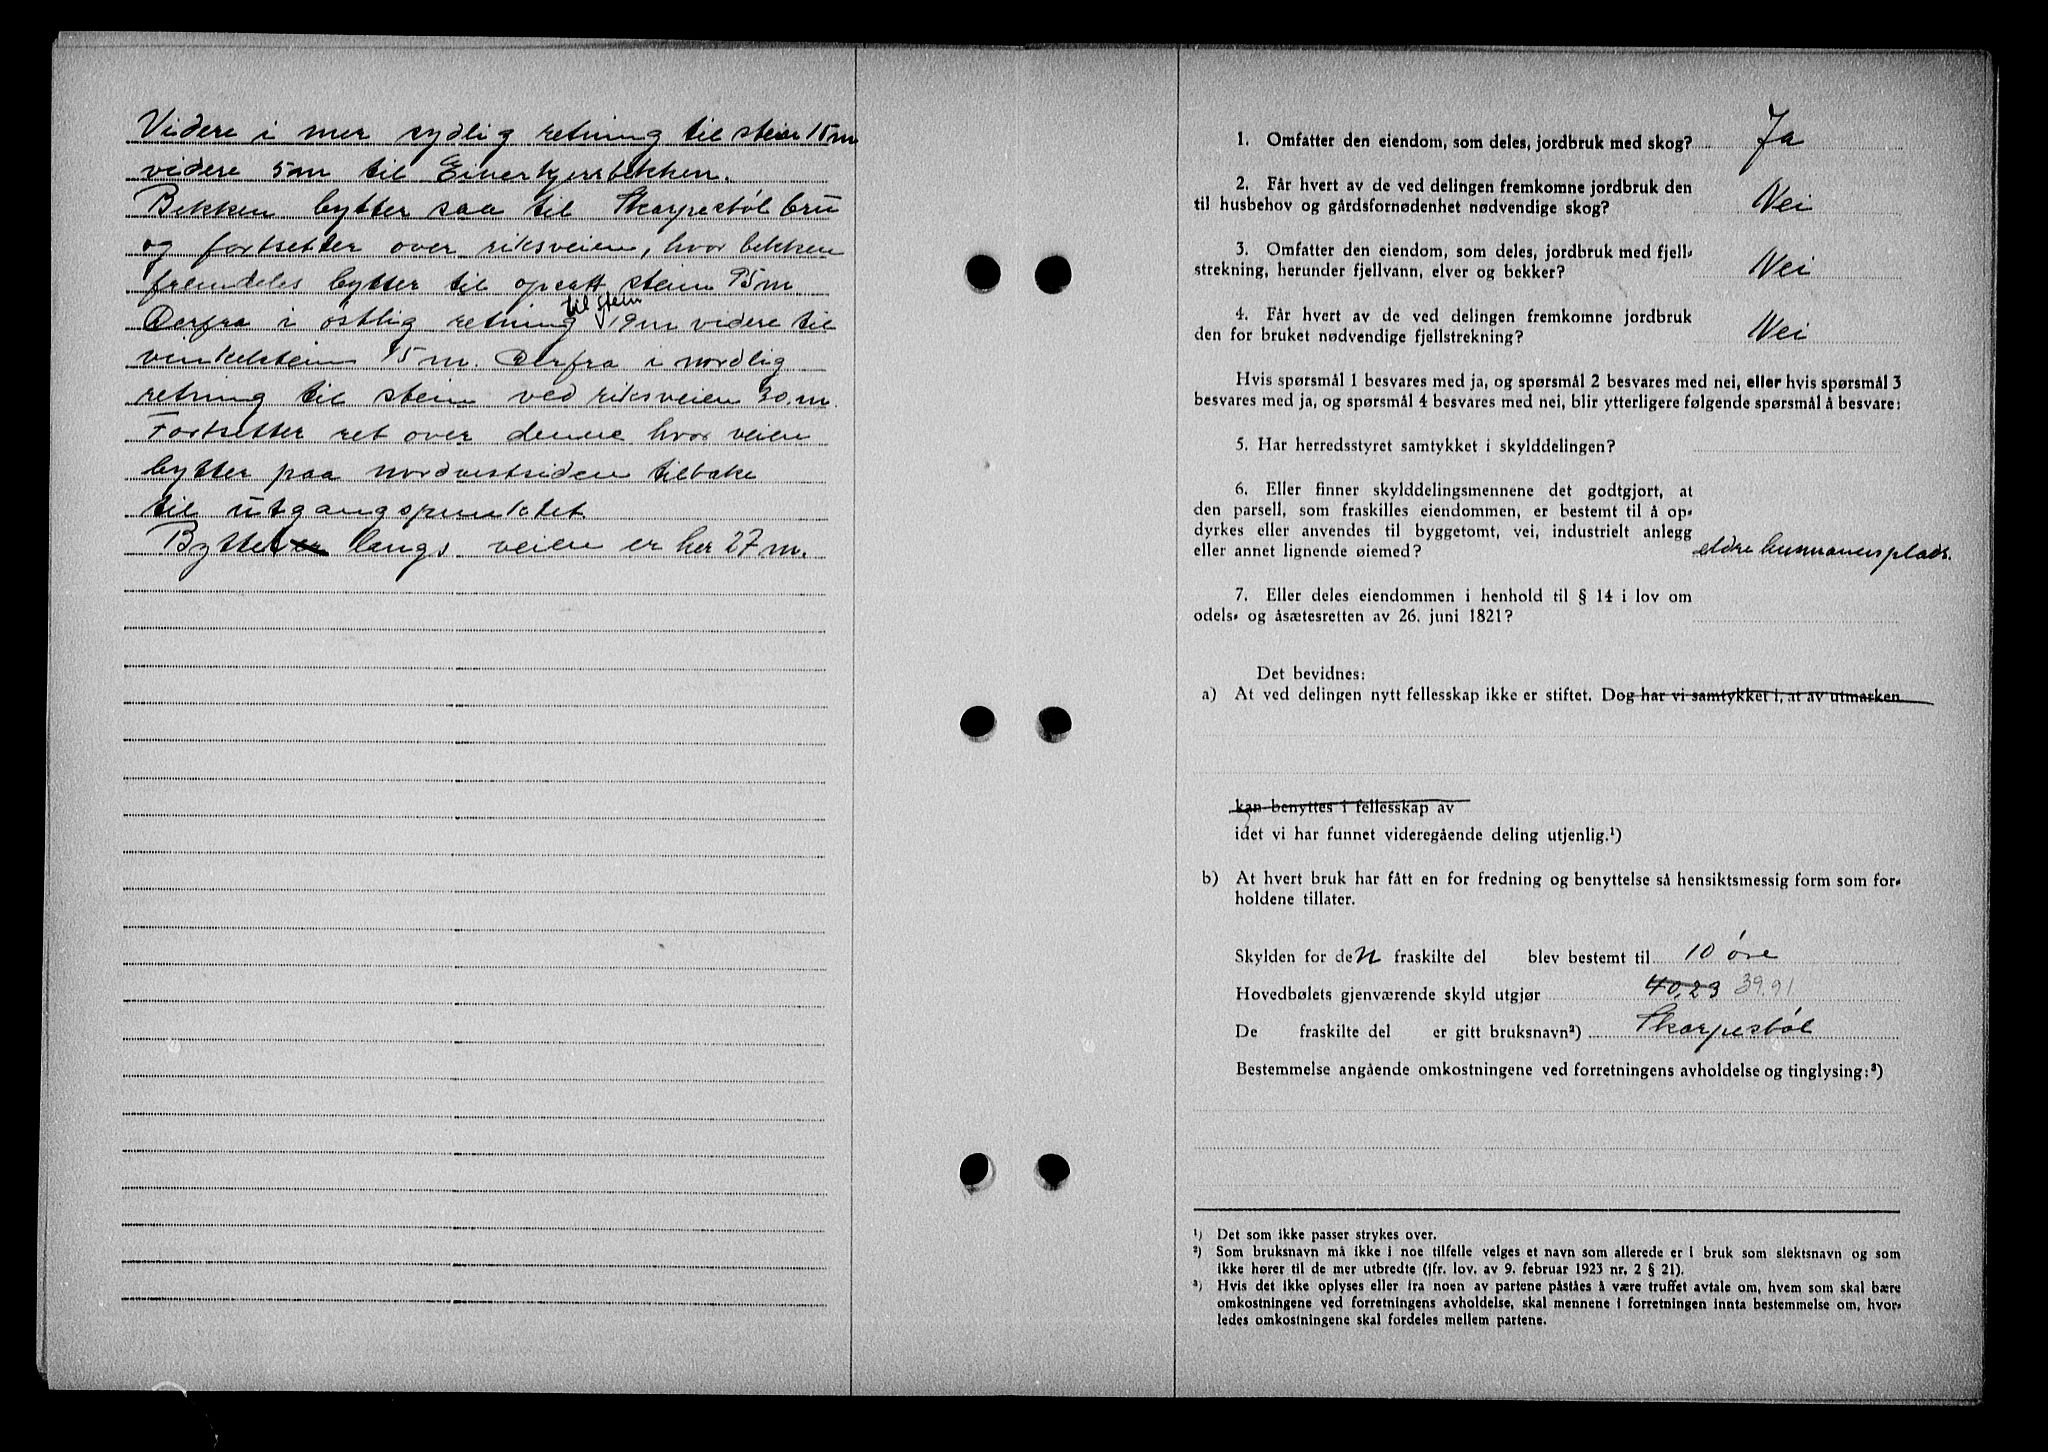 Videre i mer sydlig retning til stein 15 m
videre 5 m til Einerkjerrbekken.
Bekken bytter saa til Skarpesbøl bru
og fortsetter over riksveien, hvor bekken
fremdeles bytter til opsatt stein 95 m
Derfra i østlig retning til stein 19 m videre til
vinkelstein 15 m. Derfra i nordlig
retning til stein ved riksveien 30 m.
Fortsetter ret over denne hvor veien
bytter paa nordvestsiden tilbake
til utgangspunktet.
Byttet langs veien er her 27 m.
1. Omfatter den eiendom, som deles, jordbruk med skog? Ja
2. Får hvert av de ved delingen fremkomne jordbruk den
til husbehov og gårdsfornødenhet nødvendige skog? Nei
3. Omfatter den eiendom, som deles, jordbruk med fjell-
strekning, herunder fjellvann, elver og bekker? Nei
4. Får hvert av de ved delingen fremkomne jordbruk
den for bruket nødvendige fjellstrekning? Nei
Hvis spørsmål 1 besvares med ja, og spørsmål 2 besvares med nei, eller hvis spørsmål 3
besvares med ja, og spørsmål 4 besvares med nei, blir ytterligere følgende spørsmål å besvare:
5. Har herredsstyret samtykket i skylddelingen?
6. Eller finner skylddelingsmennene det godtgjort, at
den parsell, som fraskilles eiendommen, er bestemt til å op-
dyrkes eller anvendes til byggetomt, vei, industrielt anlegg
eller annet lignende øiemed? eldre husmannsplads.
7. Eller deles eiendommen i henhold til § 14 i lov om
odels- og åsætesretten av 26. juni 1821?
Det bevidnes:
a) At ved delingen nytt fellesskap ikke er stiftet. Dog har vi samtykket i, at av utmarken
kan benyttes i fellesskap av
idet vi har funnet videregående deling utjenlig.¹)
b) At hvert bruk har fått en for fredning og benyttelse så hensiktsmessig form som for-
holdene tillater.
Skylden for den fraskilte del blev bestemt til 10 øre
Hovedbølets gjenværende skyld utgjør 40,23 39.91
De fraskilte del er gitt bruksnavn²) Skarpesbøl
Bestemmelse angående omkostningene ved forretningens avholdelse og tinglysing:³)
¹) Det som ikke passer strykes over.
²) Som bruksnavn må ikke i noe tilfelle velges et navn som allerede er i bruk som slektsnavn og som
ikke hører til de mer utbredte (jfr. lov. av 9. februar 1923 nr. 2 § 21).
³) Hvis det ikke oplyses eller fra noen av partene påståes å være truffet avtale om, hvem som skal bære
omkostningene ved forretningens avholdelse, skal mennene i forretningen innta bestemmelse om, hvor-
ledes omkostningene skal fordeles mellem partene.